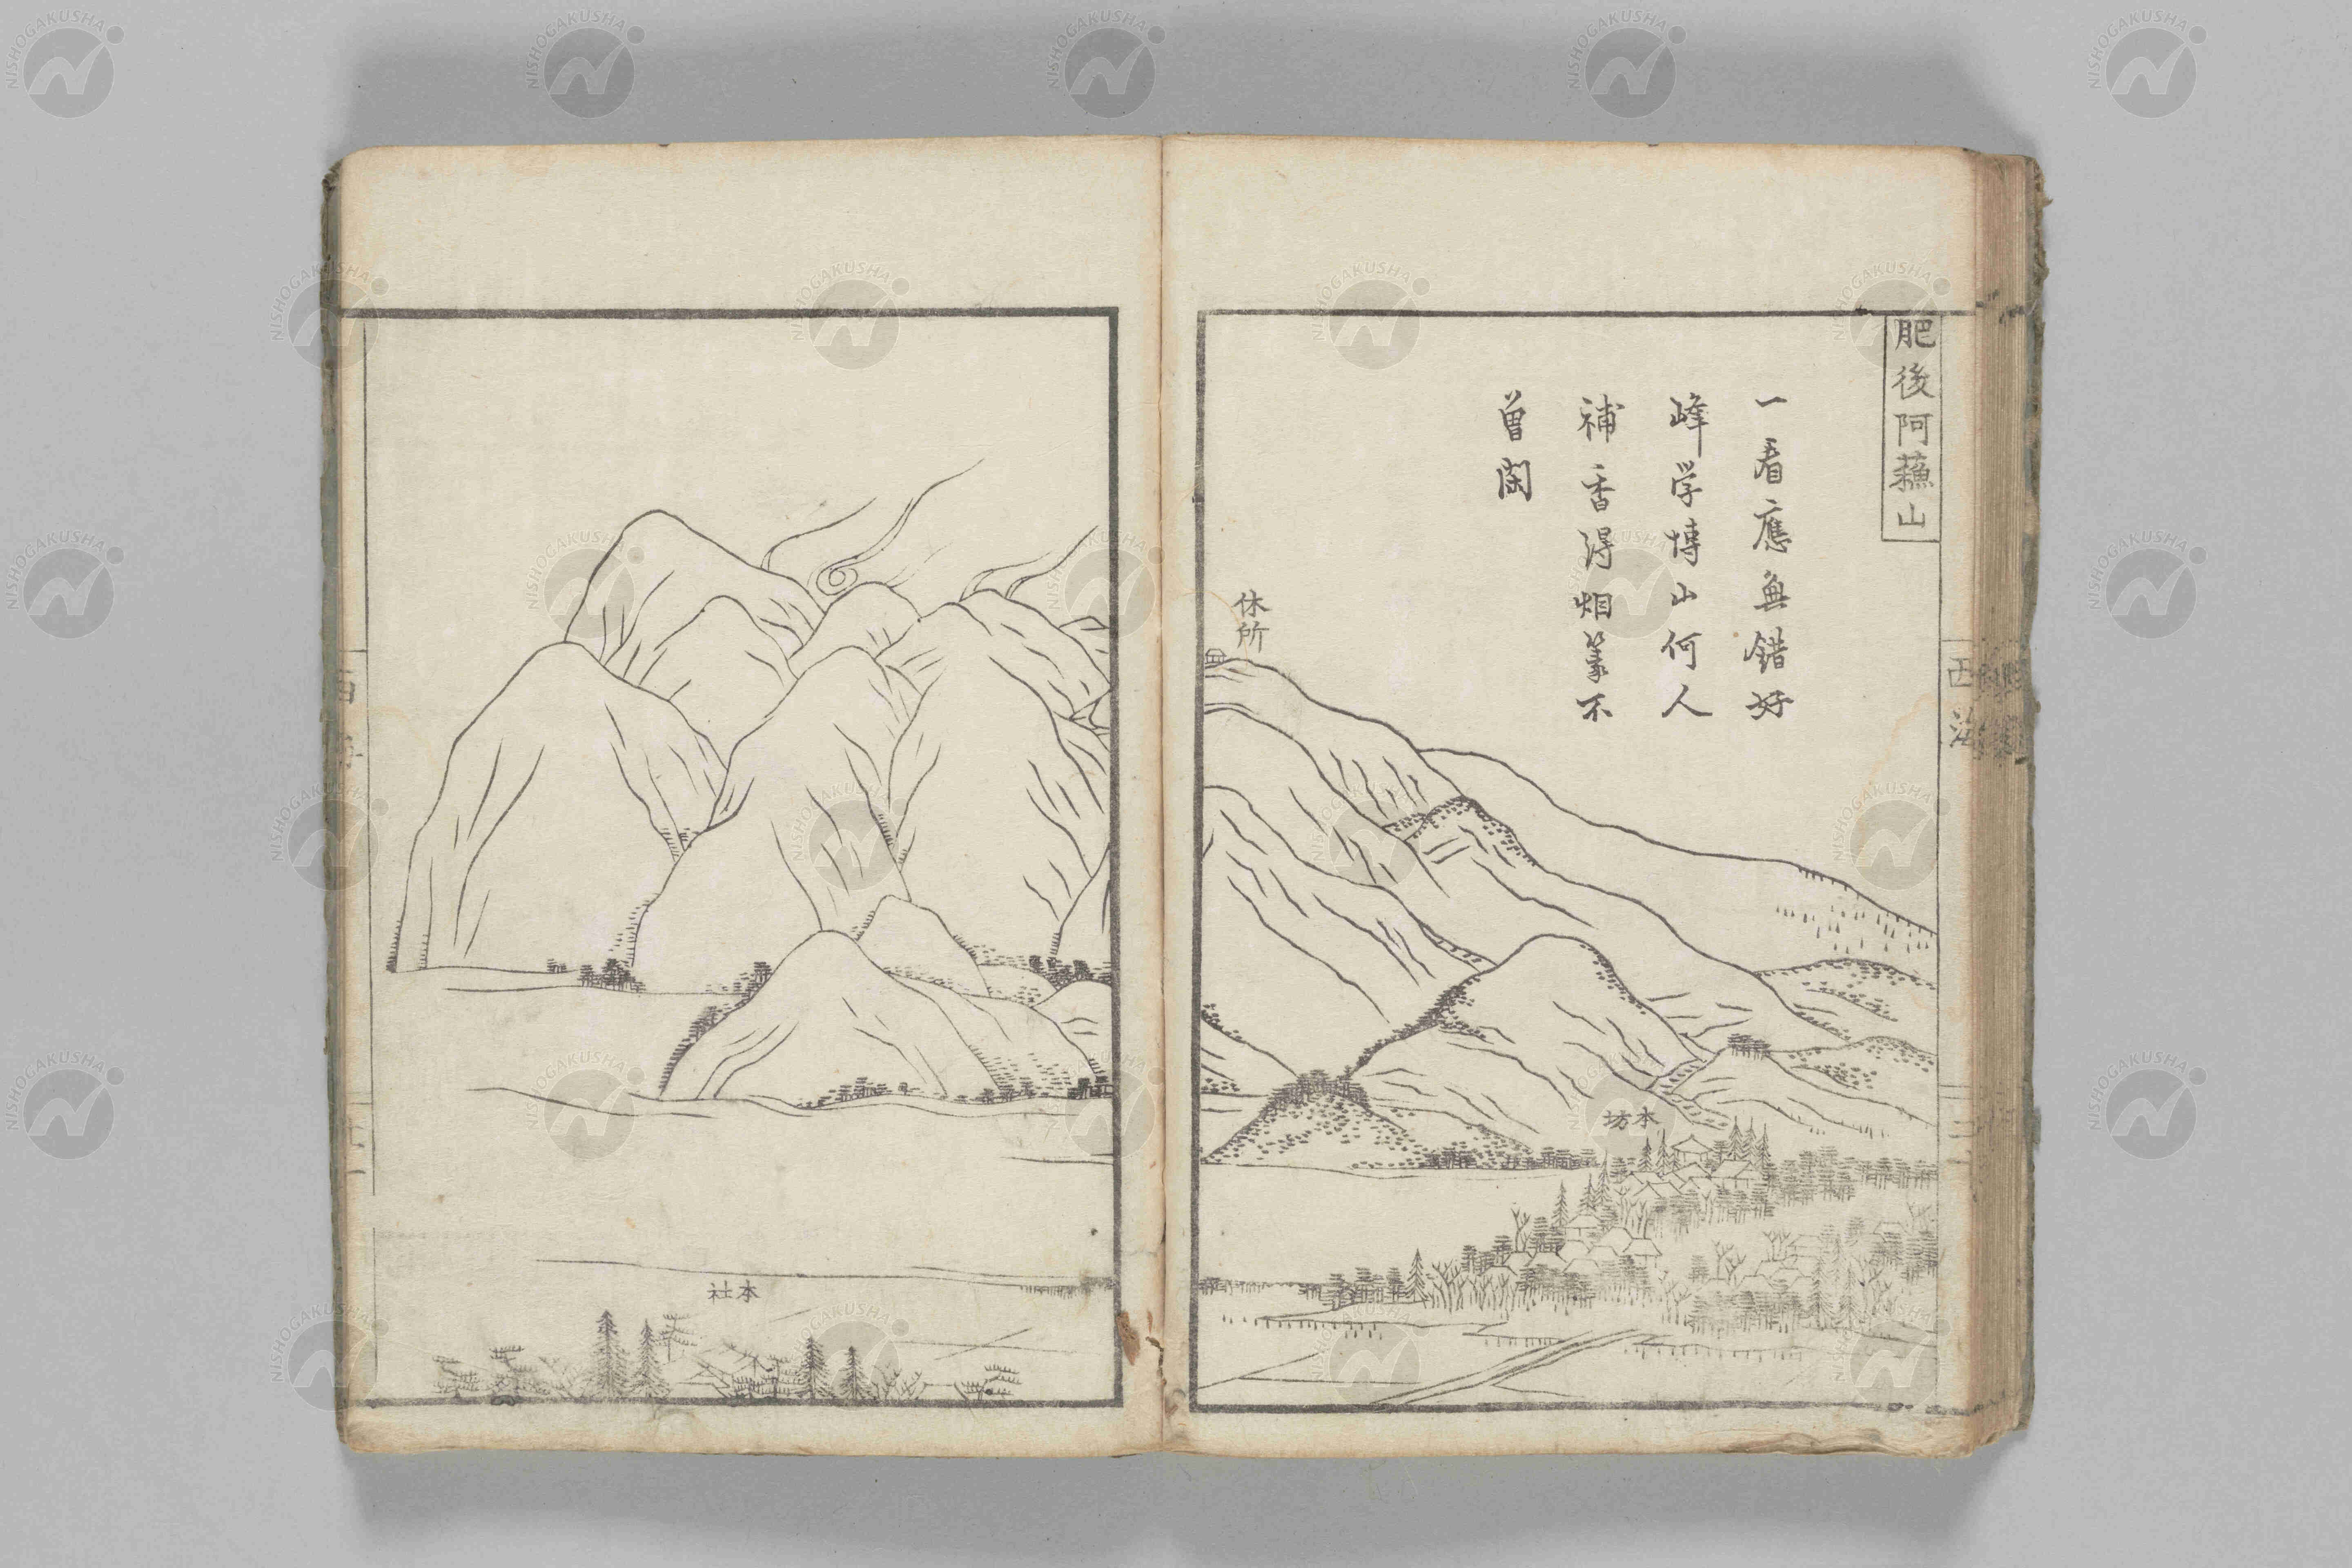 肥後阿蘓山
一看應無錯好
峰学博山何人
補香得烟篆不
曽閑
休所
本坊
西海
本社
NISHOGAKUSHA